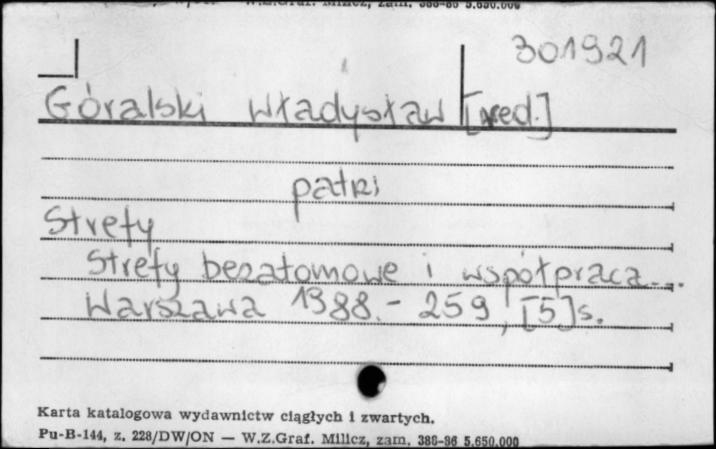 W.Z.Graf. Milicz, zam. 388-86 5.650.000
301921
Góralski Władysław [red.]
patrz
Strefy
Strefy bezatomowe i współpraca...
Warszawa 1988. - 259, [5] s.
Karta katalogowa wydawnictw ciągłych i zwartych.
Pu-B-144, z. 228/DW/ON — W.Z.Graf. Milicz, zam. 388-86 5.650.000